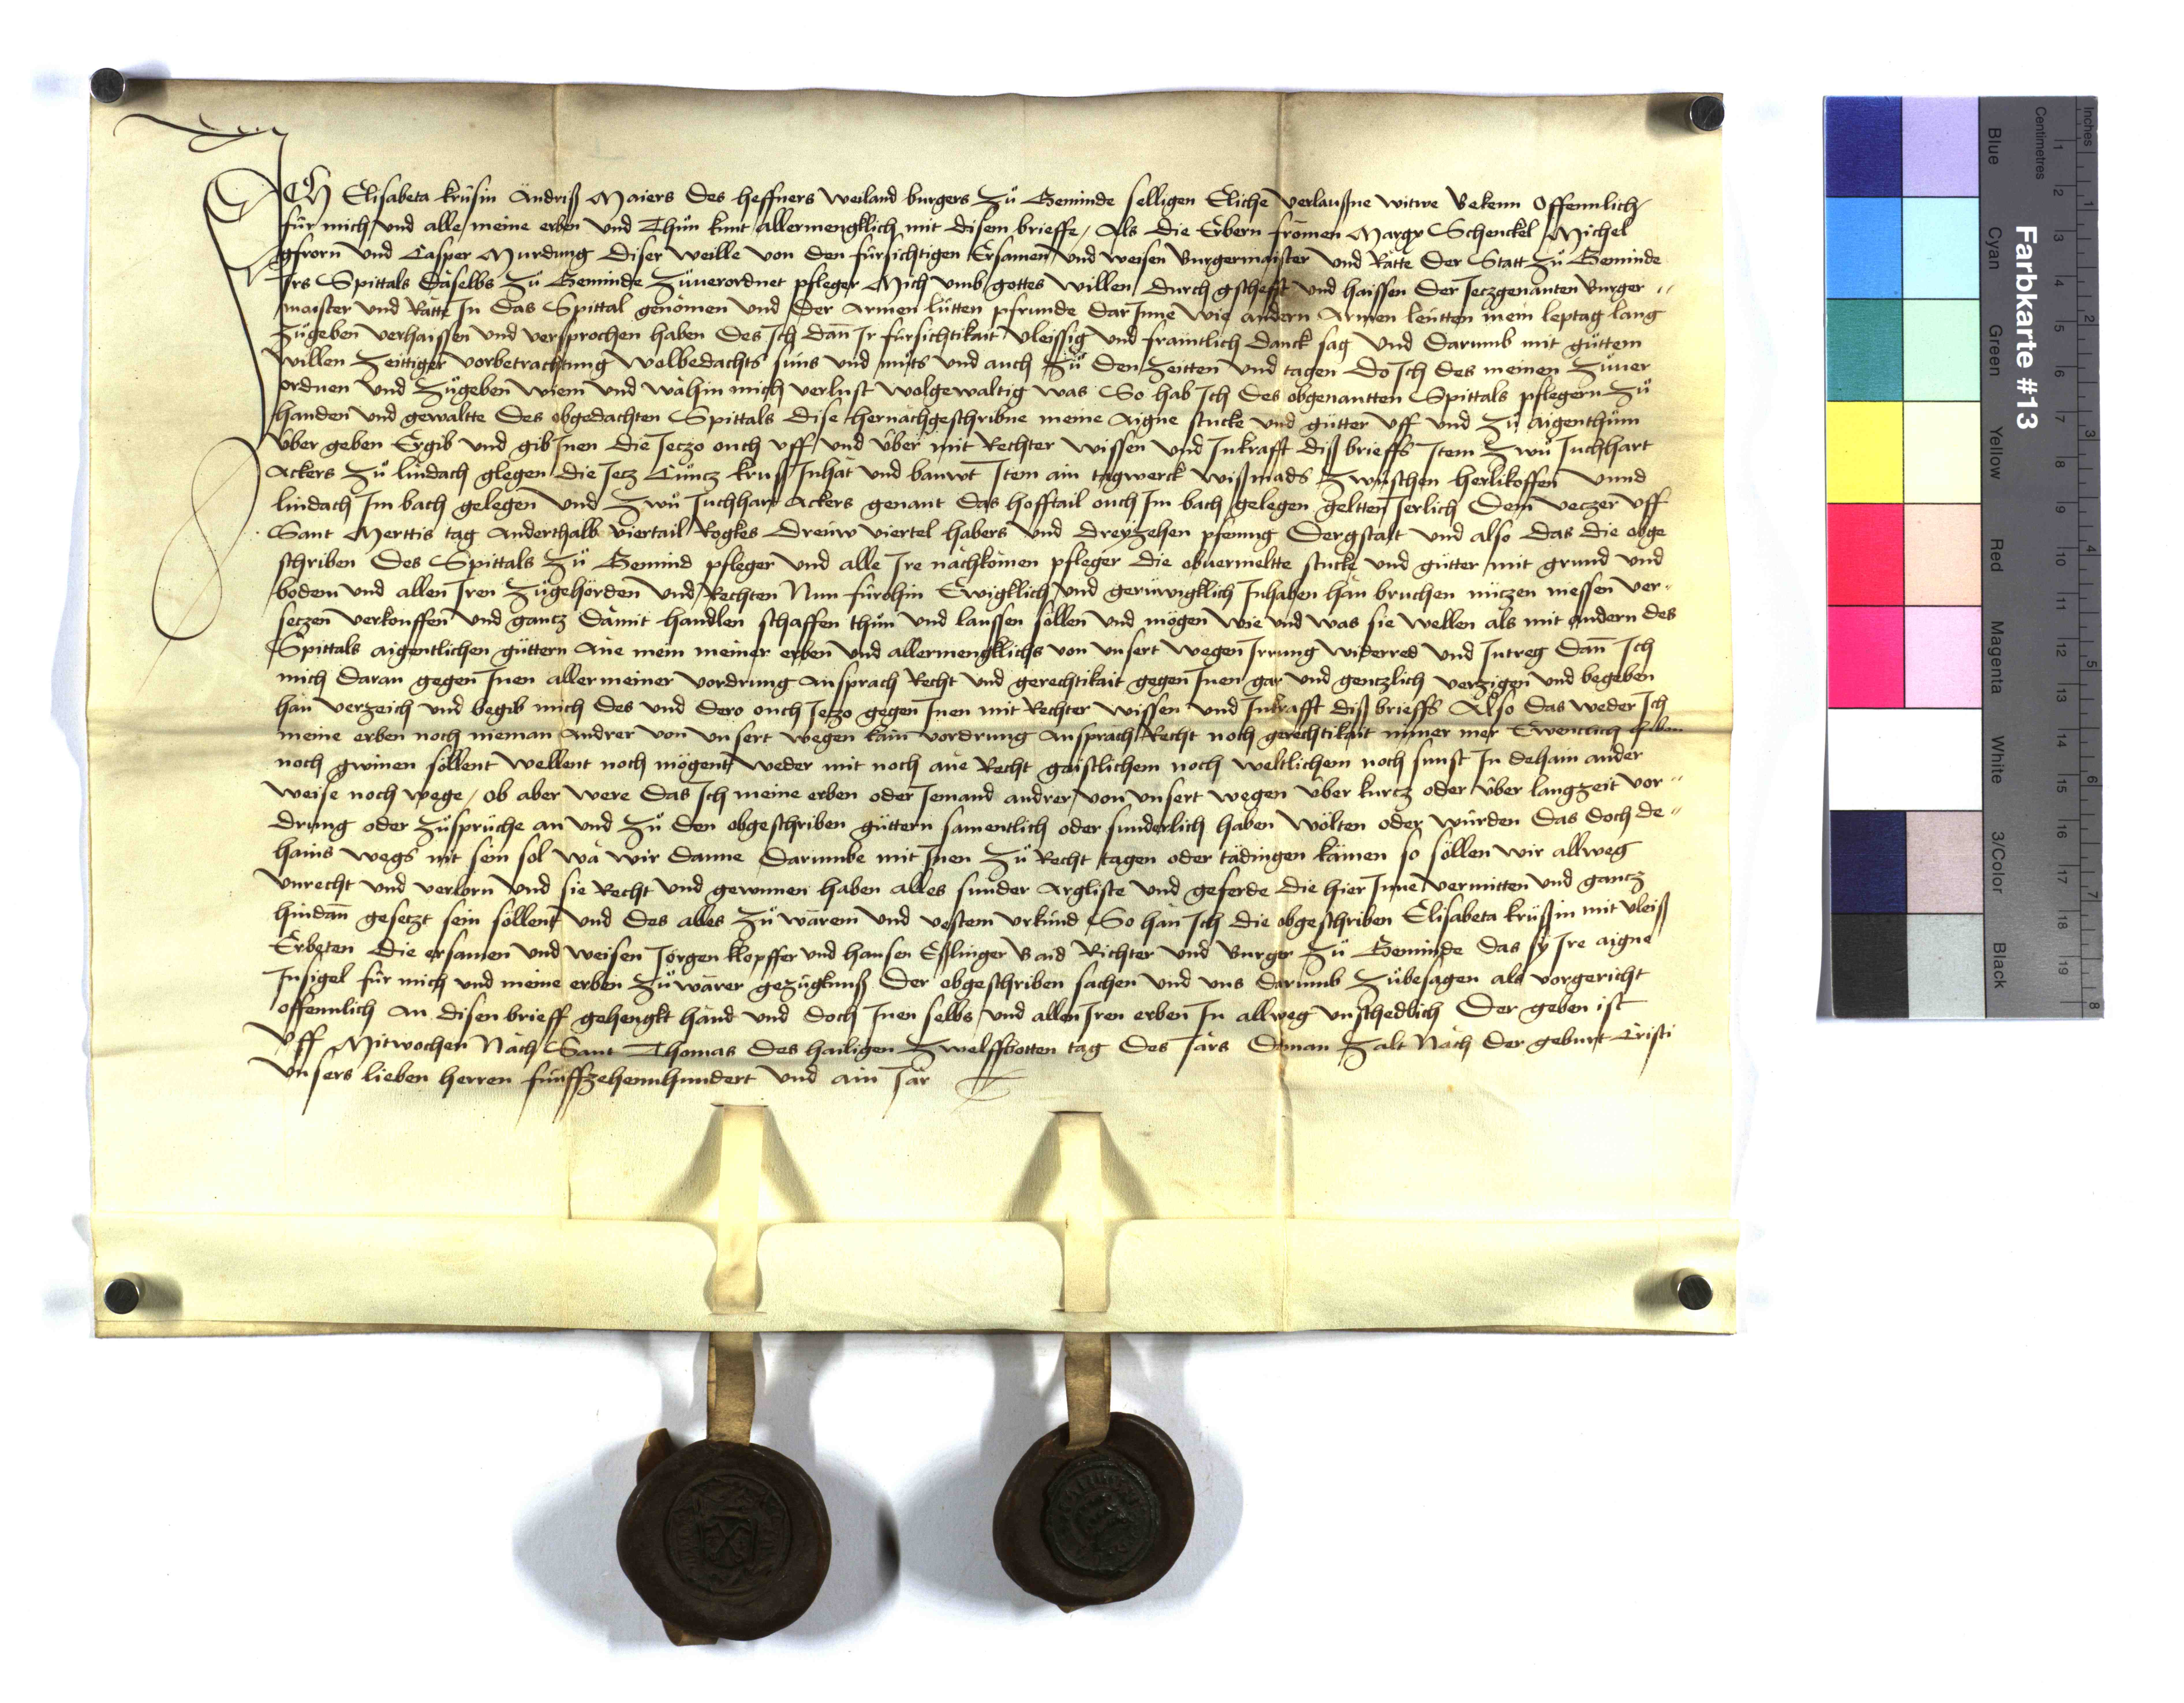 ICH Elisabeta krüsin Andriß Maiers des heffners weiland burgers Zů Gemünde selligen Eliche verlaußne witwe Bekenn Offennlich
für mich und alle meine erben und Thůn kunt allermengklich mit disem brieffe / Als die Erbern fromen Margx Schenckel Michel
gfrorn und Casper Murdung diser weille von den fürsichtigen Ersamen und weisen Burgermaister und Rätte der Statt Zů Gemünde
Irs Spittals daselbs Zů Gemünde Zůuerordnet pfleger Mich umb gottes willen durch gschefft und haissen der Jeczgenanten Burger
maister und Rätte In das Spittal genomen und der Armen lütten pfrunde dar Inne wie andern Armen leutten mein leptag lang
Zůgeben verhaissen und versprochen haben des Ich dan̄ Ir fürsichtikait vleissig und fraintlich danck sag und darumb mit gůttem
willen Zeittiger vorbetrachtung wolbedachts sins und můts und auch Zů den Zeitten und tagen do Ich des meinen Zůuer
ordnen und Zůgeben wiem und wahin mich verlust wolgewaltig was So hab Ich des obgenantten Spittals pflegern Zů
handen und gewaltte des obgedachten Spittals dise hernachgeschribne meine Aigne stucke und gůtter uff und Zů aigenthům
über geben Ergib und gib Inen die Jeczo ouch uff und über mit Rechter wissen und Inkrafft diß brieffs Item Zwů Juchhart
Ackers Zů lindach glegen die Jecz Cůncz kruß Inhat und bauwt Item ain tagwerck wißmads Zwüschen herlikoffen unnd
lindach Im bach gelegen und Zwů Juchhart Ackers genant das hofftail ouch Im bach gelegen geltten Jerlich dem veczer uff
Sant Merttis tag Anderthalb viertail Rogkes dreuw viertel habers und dreyzehen pfenng Dergstalt und also das die obge
schriben des Spittals Zů Gemünd pfleger und alle Ire nachkomen pfleger die obuermeltte stucke und gůtter mit grund und
bodem und allen Iren Zůgehörden und Rechten Nun fürohin Ewigklich und gerüwigklich Inhaben han bruchen niczen niessen ver
seczen verkouffen und gancz damit handlen schaffen thůn und laussen söllen und mögen wie und was sie wellen als mit andern des
Spittals aigentlichen gůttern Ane mein meiner erben und allermengklichs von unsert wegen Irrung widerred und Intreg dan̄ Ich
mich daran gegen Inen aller meiner vordrung Ansprach Recht und gerechtikait gegen Inen gar und genczlich verzigen und begeben
han verzeich und begib mich des und dero ouch Jeczo gegen Inen mit Rechter wissen und Inkrafft diß brieffs Also das weder Ich
meine erben noch nieman Andrer von unsert wegen kain vordrung Ansprach Recht noch gerechtikait nimer mer haben
noch gwinen söllent wellent noch mögent weder mit noch ane Recht gaistlichem noch weltlichem noch sunst In dehain ander
weise noch wege / ob aber were das Ich meine erben oder Jemand andrer von unsert wegen über kurcz oder über langzeit vor
drung oder Zůsprüche an und Zů den obgeschriben gůttern samentlich oder sunderlich haben wölten oder würden das doch de
hains wegs nit sein sol wa wir danne darumbe mit Inen Zů Recht tagen oder tädingen kämen so söllen wir allweg
unrecht und verlorn und sie Recht und gewunnen haben alles sunder Argliste und geferde die hier Inne vermitten und gancz
hindan̄ gesetzt sein söllent und des alles Zů warem und vestem urkünd So han Ich die obgeschriben Elisabeta krüßin mit vleiß
Erbeten die ersamen und weisen Jörgen klopffer und hansen Eßlinger Baid Richter und Burger Zů Gemünde das sy Ire aigne
Insigel für mich und meine erben Zů warer gezügknuß der obgeschriben sachen und uns darumb Zůbesagen als vorgericht
offennlich an disen brieff gehengkt hand und doch Inen selbs und allen Iren erben In allweg unschedlich Der geben ist
Uff Mitwochen Nach Sant Thomas des hailigen Zwelffbotten tag des Jars Do man Zalt Nach der geburt Cristi
unsers lieben herren fünffzehennhundert und ain Jar
Farbkarte #13
Blue Cyan Green Yellow Red Magenta White 3/Color Black
Inches 1 2 3 4 5 6 7 8
Centimetres 1 2 3 4 5 6 7 8 9 10 11 12 13 14 15 16 17 18 19